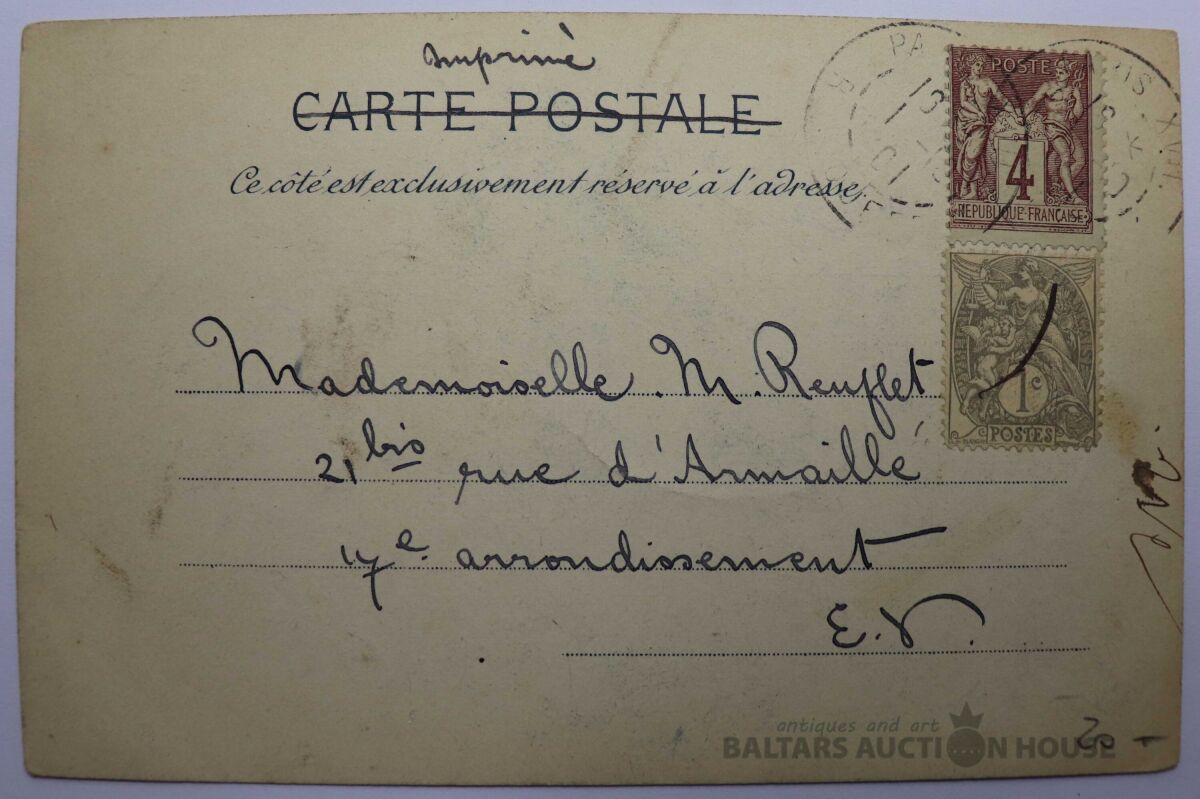 Imprimé
CARTE POSTALE
Ce côté est exclusivement réservé à l'adresse
POSTE
4
REPUBLIQUE FRANÇAISE
1c
POSTES
Mademoiselle M. Reufflet
21 bis rue d'Armaillé
17e arrondissement
E.V.
20 -
antiques and art
BALTARS AUCTION HOUSE